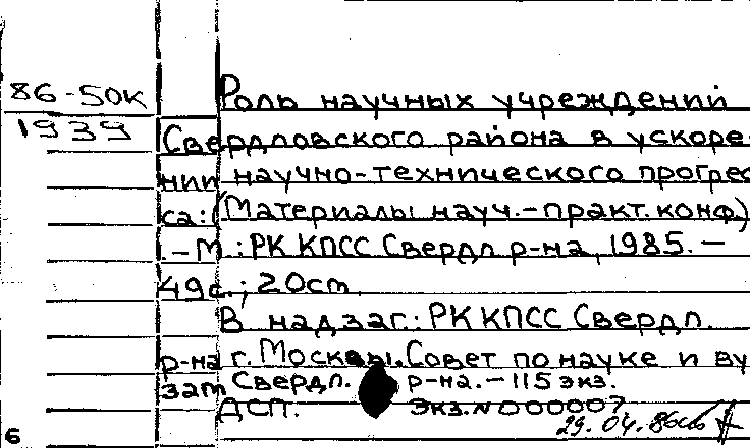 86-50К
1939
Роль научных учреждений
Свердловского района в ускоре-
нии научно-технического прогрес-
са: (Материалы науч.-практ. конф.)
.-М.: РК КПСС Свердл. р-на, 1985.-
49с.; 20см.
В надзаг.: РК КПСС Свердл.
р-на г. Москвы. Совет по науке и ву
зам Свердл. р-на.-115 экз.
ДСП. Экз.N 000007
29.04.86
6